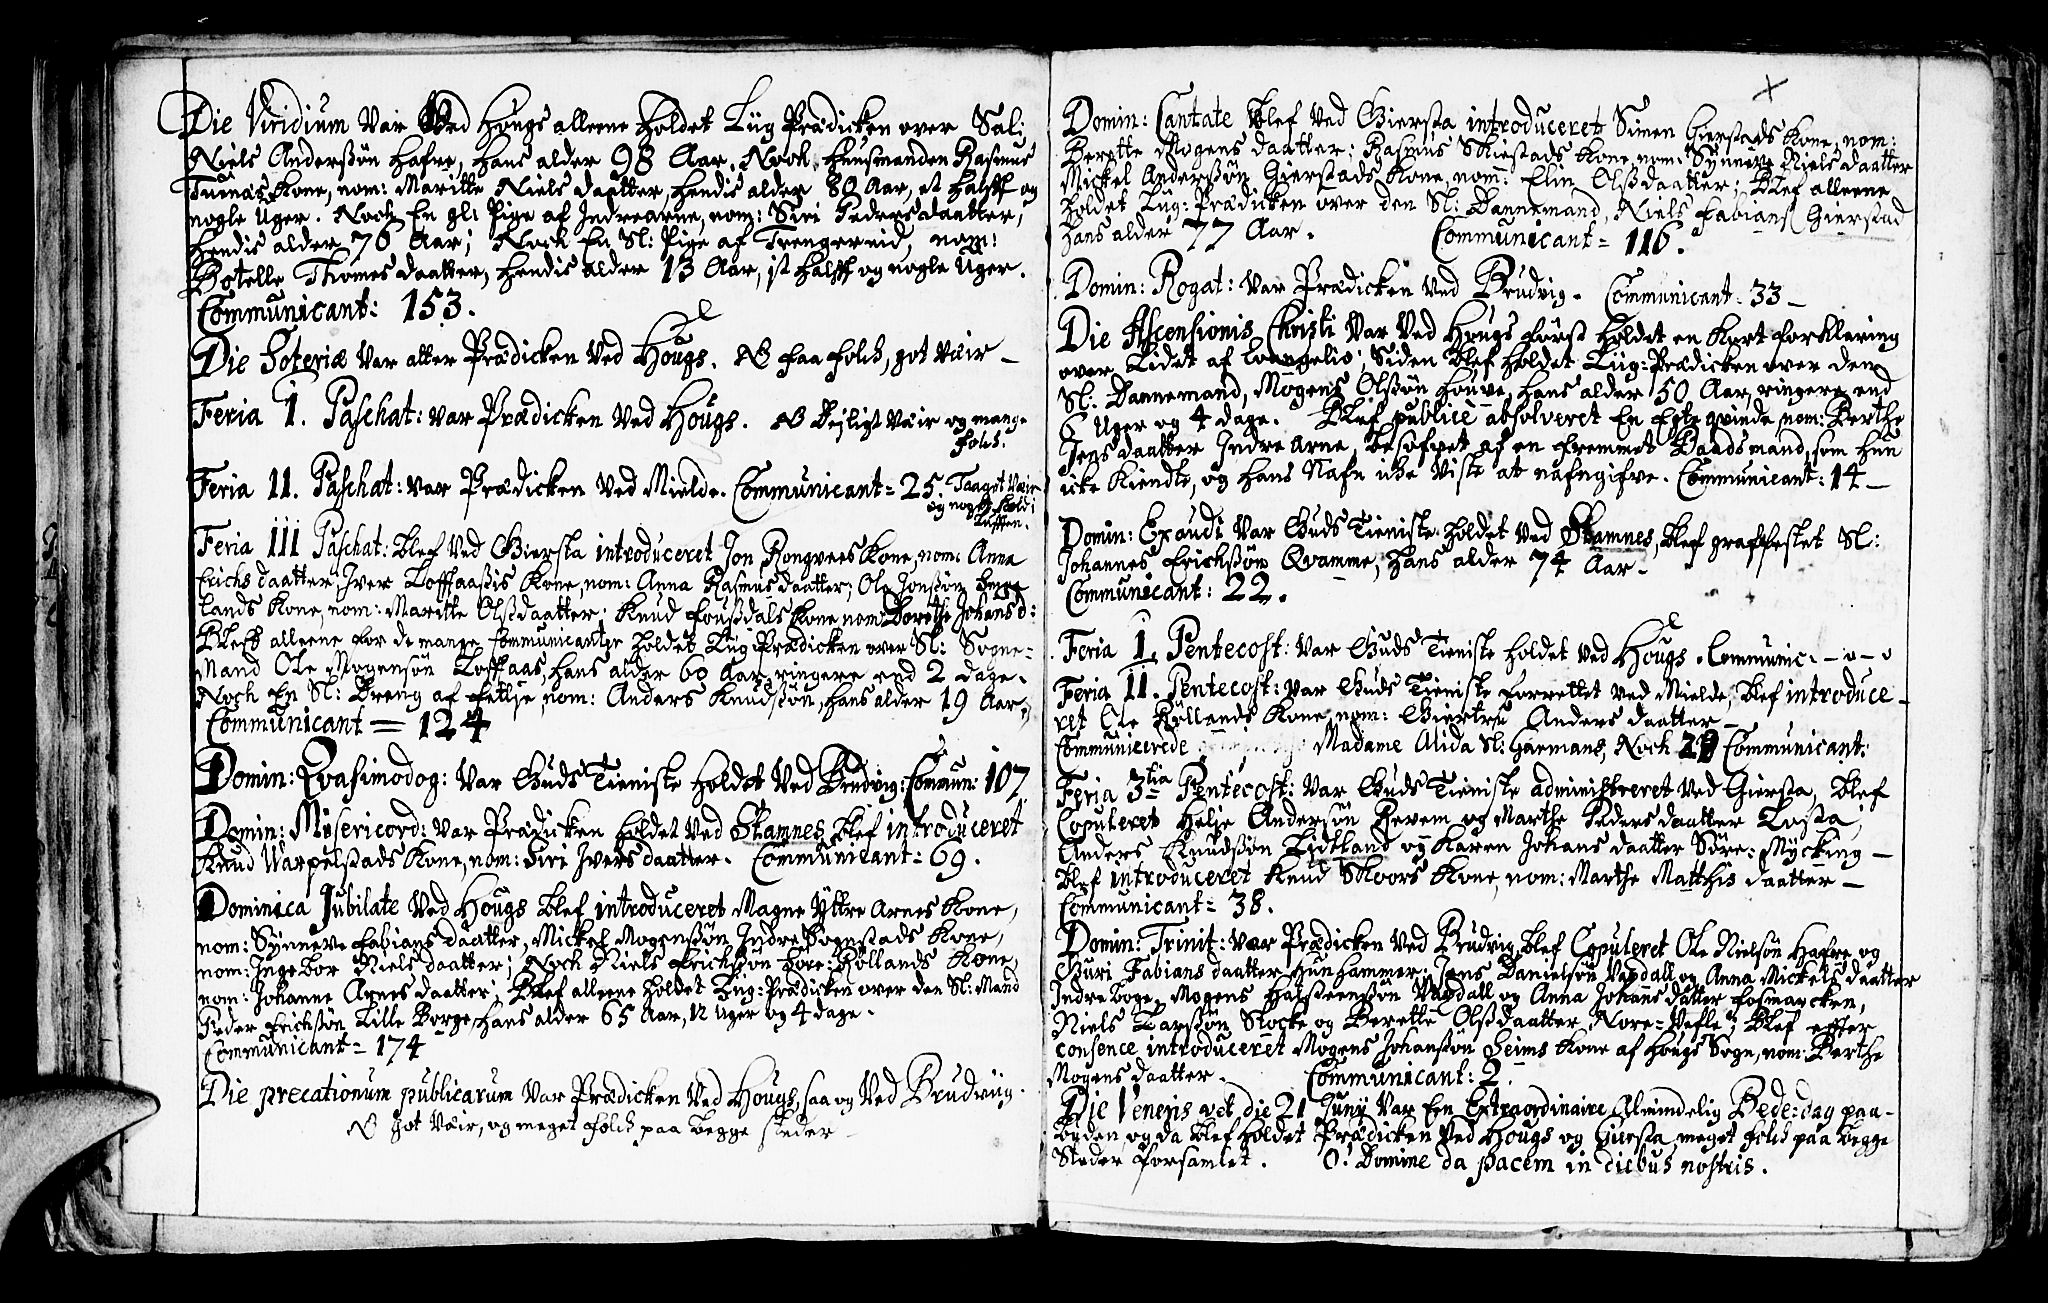 Die Viridium var Ved Hougs alleene holdet Liig Prædicken over Sali:
Niels Anderssøn Hafre, hans alder 98 Aar. Nock Huusmanden Rasmus
Tunæs Kone, nom: Maritte Niels daatter, hendis alder 80 Aar, et halft og
nogle Uger. Nock En gl: Pige af Indrearne, nom: Siri Peders daatter,
hendis alder 76 Aar; Nock En Sl: Pige af Trengereid, nom:
Botelle Thomes daatter, hendis alder 13 Aar, it halft og nogle Uger.
Communicant: 153.
Die Soteriæ var atter Prædicken Ved Hougs. NB faa folck, got Væir
Feria 1. Paschat: var Prædicken Ved Hougs. NB Dejligt Væir og mange
folck.
Feria 11. Paschat: var Prædicken Ved Mielde. Communicant = 25. Taaget Væir
og noget kold i
Lufften.
Feria III Paschat: blef Ved Giersta introduceret Jon Rongvees Kone, nom: Anna
Erichs daatter, Iver Toffaasis Kone, nom: Anna Rasmus daatter, Ole Jonssøn
lands Kone, nom: Maritte Olssdaatter; Knud Foussdals Kone nom: Dorethe Johans d:
Bleff alleene for de mange Communicanter holdet Liig Prædicken over Sl: Sogne-
Mand Ole Mogenssøn Toffaas, hans alder 60 Aar, ringere end 2 dage.
Noch En Sl: Dreng af , nom: Anders Knudssøn, hans alder 19 Aar,
Communicant = 124
Domin: Qvasimodog: Var Guds Tieniste Holdet Ved Brudvig: Commun: 107
Domin: Misericord: var Prædicken holdet Ved Skamnes, blef introduceret
Knud Warpelstads Kone, nom: Siri Ivers daatter. Communicant = 69.
Dominica Jubilate Ved Hougs blef introduceret Magne Yttre Arnes Kone,
nom: Synneve Fabians daatter, Mickel Mogenssøn Indre Sognstads Kone,
nom: Ingebor Niels daatter; Nock Niels Erichssøn Røllands Kone,
nom: Johanne Arnes daatter; Blef alleene holdet Liig-Prædicken over den Sl: Mand
Peder Erichssøn Lille Borge, hans alder 65 Aar, 12 Uger og 4 dage.
Communicant = 174
Die precationum publicarum var Prædicken Ved Hougs, saa og Ved Brudviig.
NB got Væir, og meget folck paa begge steder
Domin: Cantate blef Ved Giersta introduceret Simen Gierstads Kone, nom:
Berette Mogens daatter; Rasmus Skiestads Kone, nom: Synneve Niels daatter
Mickel Anderssøn Gierstads Kone, nom: Elin Olssdaatter; Blef alleene
holdet Liig-Prædicken over den Sl: Dannemand, Niels Fabians Gierstad
hans alder 77 Aar. Communicant = 116.
Domin: Rogat: var Prædicken Ved Brudvig. Communicant = 33
Die Ascensionis Christi Var Ved Hougs først holdet en Kort forklaring
over Tidet af Evangelio; Siden blef holdet Liig-Prædicken over den
Sl: Dannemand, Mogens Olssøn Houve, hans alder 50 Aar, ringere end
6 Uger og 4 dage. Blef publicè absolveret En Egte qvinde nom: Berthe
Jens daatter Indre Arne, besofvet af en fremmet Baadsmand, som hun
icke Kiendte, og hans Nafn icke Viste at nafngifve. Communicant: 14
Domin: Exaudi Var Guds Tieniste holdet Ved Skamnes, blef graffestet Sl:
Johannes Erichssøn Qvamme, hans alder 74 Aar.
Communicant: 22.
Feria 1. Pentecost: Var Guds Tieniste holdet Ved Hougs. Communic: - 0 - 0
Feria II. Pentecost: Var Guds Tieniste forrettet Ved Mielde, blef introduce-
ret Ole Rollands Kone, nom: Giertru Anders daatter
Communicerede Madame Alida Sl: Harmans, Nock 29 Communicant:
Feria 3tia Pentecost: Var Guds Tieniste administreret Ved Giersta, blef
Copuleret Helje Anderssøn Revem og Marthe Peders daatter Tosta,
Anders Knudssøn Lidtland og Karen Johans daatter Søre: Mycking
blef introduceret Knud Skoors Kone, nom: Marthe Matthis daatter
Communicant = 38.
Domin: Trinit: var Prædicken Ved Brudvig, blef Copuleret Ole Nielssøn Hafre og
Guri Fabians daatter Hunhammer; Jens Danielssøn Vasdall og Anna Mickels daatter
Indre Boge, Mogens Halsteenssøn Vasdall og Anna Johans datter Fosmarcken,
Niels Larssøn Stocke og Berette Olssdaatter Nore-Vefle; blef effter
consence introduceret Mogens Johanssøn Seims Kone af Hougs Sogn, nom: Berthe
Mogens daatter. Communicant: 2.
Die Veneris vel die 21 Junij Var En Extraordinaire Almindelig Bede:dag paa-
byden, og da blef holdet Prædicken Ved Hougs og Giersta, meget folck paa begge
Steder forsamlet. O! Domine da pacem in diebus nostris.